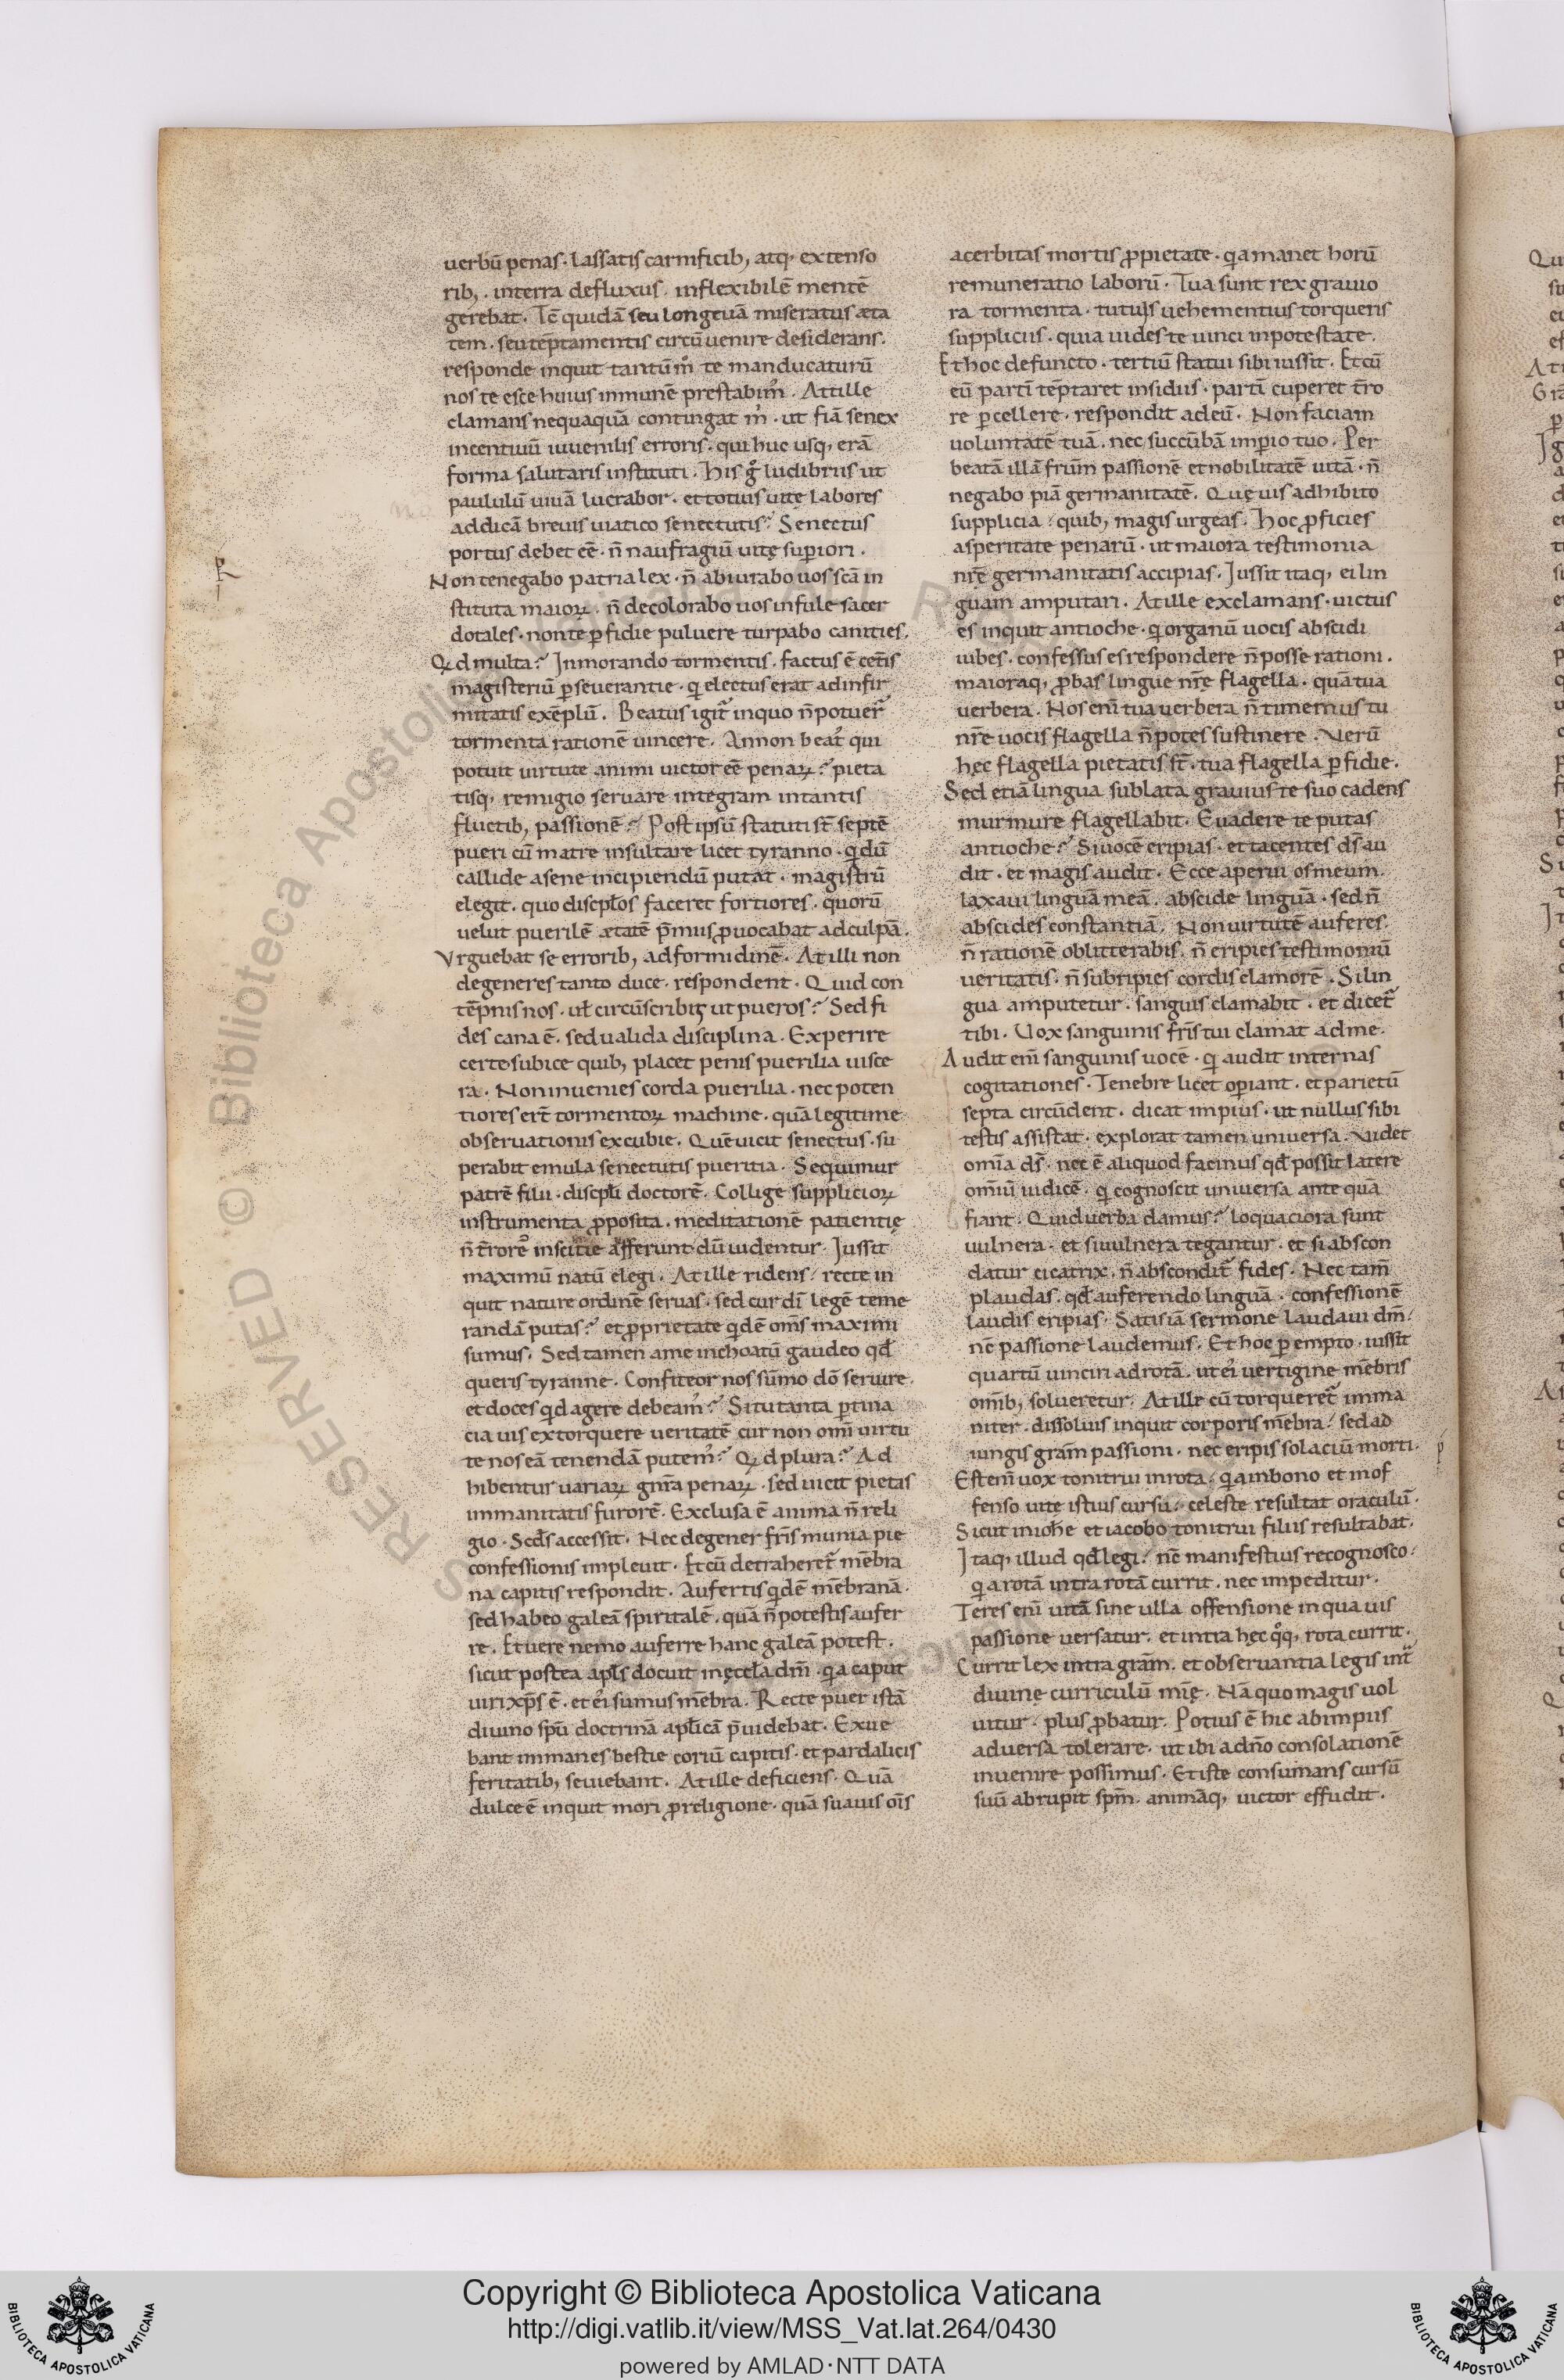 uerbū penas. Lassatis carnificib; atq; extenso
rib; . interra defluxus. inflexibilē mentē
gerebat. Tē quidā seu longeuā miseratus æta
tem. seu tēptamentis circūuenire desiderans.
responde inquit tantūm̊ te manducaturū
nos te esce huius inmunē prestabim̓. At ille
clamans nequaquā contingat m̓. ut fiā senex
incentiuū iuuenilis erroris. qui huc usq; erā
forma salutaris instituti. His g̊ ludibriis ut
paululū uiuā lucrabor. et totius uitę labores
addicā breuis uiatico senectutis? Senectus
portus debet eē. n̄ naufragiū uitę superiori.
Non te negabo patria lex. n̄ abiurabo uos scā in
stituta maioꝝ. n̄ decolorabo uos infule sacer
dotales. non te ꝑfidie puluere turpabo canities.
Qd multa? Inmorando tormentis. factus ē cet̄is
magisteriū ꝑseuerantie. q electus erat ad infir
mitatis exēplū. Beatus igit̄ in quo n̄ potuer̄
tormenta rationē uincere. An non beat̓ qui
potuit uirtute animi uictor eē penaꝝ? pieta
tisq; remigio seruare integram in tantis
fluctib; passionē? Post ipsū statuti st̄ septē
pueri cū matre insultare licet tyranno. q dū
callide a sene incipiendū putat. magistrū
elegit. quo discpłos faceret fortiores. quorū
uelut puerilē ætatē p̄mus ꝓuocabat ad culpā.
Vrguebat se errorib; ad formidinē. At illi non
degeneres tanto duce. respondent. Quid con
tēpnis nos. uł circūscribis ut pueros? Sed fi
des cana ē. sed ualida disciplina. Experire
certe subice quib; placet penis puerilia uisce
ra. Non inuenies corda puerilia. nec poten
tiores er̄t tormentoꝝ machine. quā legitime
obseruationis excubie. Quē uicit senectus. su
perabit emula senectutis pueritia. Sequimur
patrē filii. discpłi doctorē. Collige supplicioꝝ
instrumenta ꝓposita. meditationē patientię
n̄ t̄rorē inscitie afferunt dū uidentur. Jussit
maximū natū elegi. At ille ridens / recte in
quit nature ordinē seruas. sed cur dī legē teme
randā putas? et ꝓprietate qdē om̄s maximi
sumus. Sed tamen a me inchoatū gaudeo qđ
queris tyranne. Confiteor nos sūmo dō seruire.
et doces qd agere debeam̓? Si tu tanta ꝑtina
cia uis extorquere ueritatē cur non omī uirtu
te nos eā tenendā putem̓? Qd plura? Ad
hibentur uariaꝝ gn̄ra penaꝝ. sed uicit pietas
immanitatis furorē. Exclusa ē anima n̄ reli
gio. Scd̄s accessit. Nec degener fr̄is munia pie
confessionis impleuit. Et cū detraheret̄ mēbra
na capitis respondit. Aufertis qdē mēbranā.
sed habeo galeā spiritalē. quā n̄ potestis aufer
re. Et uere nemo auferre hanc galeā potest.
sicut postea apłs docuit in ęcc̄la dn̄i. qa caput
uiri xp̄s ē. et ei̓ sumus mēbra. Recte puer istā
diuino sp̄u doctrinā apłicā p̄uidebat. Exue
bant immanes bestie coriū capitis. et pardalicis
feritatib; seuiebant. At ille deficiens. Quā
dulce ē inquit mori ꝓ religione. quā suauis oīs
acerbitas mortis ꝓ pietate. qa manet horū
remuneratio laborū. Tua sunt rex grauio
ra tormenta. tu tuis uehementius torqueris
suppliciis. quia uides te uinci in potestate.
Et hoc defuncto. tertiū statui sibi iussit. Et cū
eū partī tēptaret insidiis. partī cuperet t̄ro
re ꝑcellere. respondit ad eū. Non faciam
uoluntatē tuā. nec succūbā imperio tuo. Per
beatā illā fr̄um passionē et nobilitatē uitā. n̄
negabo piā germanitatē. Quęuis adhibito
supplicia / quib; magis urgeas. Hoc ꝓficies
asperitate penarū. ut maiora testimonia
nr̄ę germanitatis accipias. Jussit itaq; ei lin
guam amputari. At ille exclamans. uictus
es inquit antioche. q organū uocis abscidi
iubes. confessus es respondere n̄ posse rationi.
maioraq; ꝓbas lingue nr̄ę flagella. quā tua
uerbera. Nos enī tua uerbera n̄ timemus tu
nr̄e uocis flagella n̄ potes sustinere. Verū
hęc flagella pietatis st̄. tua flagella ꝑfidie.
Sed etiā lingua sublata grauius te suo cadens
murmure flagellabit. Euadere te putas
antioche? Si uocē eripias. et tacentes ds̄ au
dit. et magis audit. Ecce aperui os meum.
laxaui linguā meā. abscide linguā. sed n̄
abscides constantiā. Non uirtutē auferes.
n̄ rationē oblitterabis. n̄ eripies testimoniū
ueritatis. n̄ subripies cordis clamorē. Si lin
gua amputetur. sanguis clamabit. et dicet̄
tibi. Vox sanguinis fr̄is tui clamat ad me.
Audit enī sanguinis uocē. q audit internas
cogitationes. Tenebre licet operiant. et parietū
septa circūdent. dicat impius. ut nullus sibi
testis assistat. explorat tamen uniuersa. Videt
omīa ds̄. nec ē aliquod facinus qđ possit latere
omīū iudicē. q cognoscit uniuersa ante quā
fiant. Quid uerba damus? loquaciora sunt
uulnera. et si uulnera tegantur. et si abscon
datur cicatrix. n̄ abscondit̄ fides. Nec tam̄
plaudas. qđ auferendo linguā. confessionē
laudis eripias. Satis iā sermone laudaui dm̄.
nē passione laudemus. Et hoc ꝑempto. iussit
quartū uinciri ad rotā. ut ei̓ uertigine mēbris
omīb; solueretur. At ille cū torqueret̄ imma
niter. dissoluis inquit corporis mēbra. sed ad
iungis grām passioni. nec eripis solaciū morti.
Est enī uox tonitrui in rota. qa in bono et inof
fenso uitę istius cursu. celeste resultat oraculū.
Sicut in ioh̄e et iacobo tonitrui filiis resultabat.
Itaq; illud qđ legi. nē manifestius recognosco.
qa rotā intra rotā currit. nec impeditur.
Teres enī uitā sine ulla offensione in qua uis
passione uersatur. et intra hęc q̊q; rota currit.
Currit lex intra grām. et obseruantia legis int̄
diuinę curriculū mīę. Nā quo magis uol
uitur. plus ꝓbatur. Potius ē hic ab impiis
aduersa tolerare. ut ibi a dn̄o consolationē
inuenire possimus. Et iste consumans cursū
suū abrupit spm̄. animāq; uictor effudit.
Copyright © Biblioteca Apostolica Vaticana
http://digi.vatlib.it/view/MSS_Vat.lat.264/0430
powered by AMLAD·NTT DATA
BIBLIOTECA APOSTOLICA VATICANA
BIBLIOTECA APOSTOLICA VATICANA